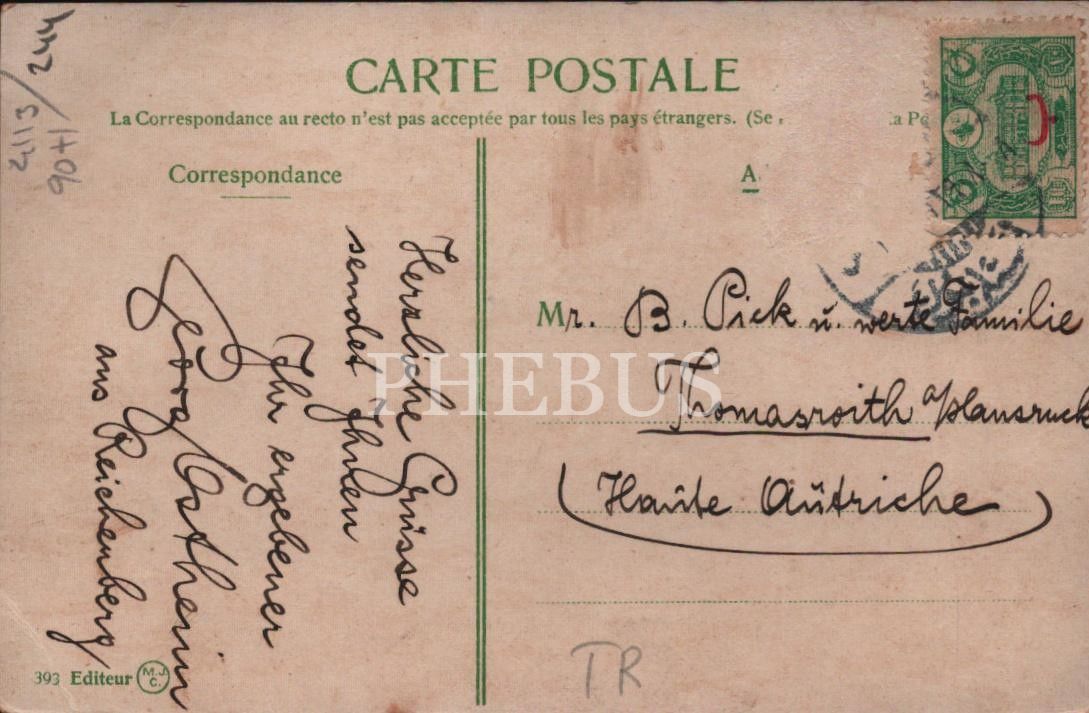 2113/244
90H/
CARTE POSTALE
La Correspondance au recto n'est pas acceptée par tous les pays étrangers. (Se
Correspondance
A
Herzliche Grüsse
sendet Ihnen
Ihr ergebener
Georg Ostheim
aus Reichenberg
Mr. B. Pick u. werte Familie
Thomasroith a/Hausruck
(Haute Autriche)
PHEBUS
393 Editeur M.J.C.
TR